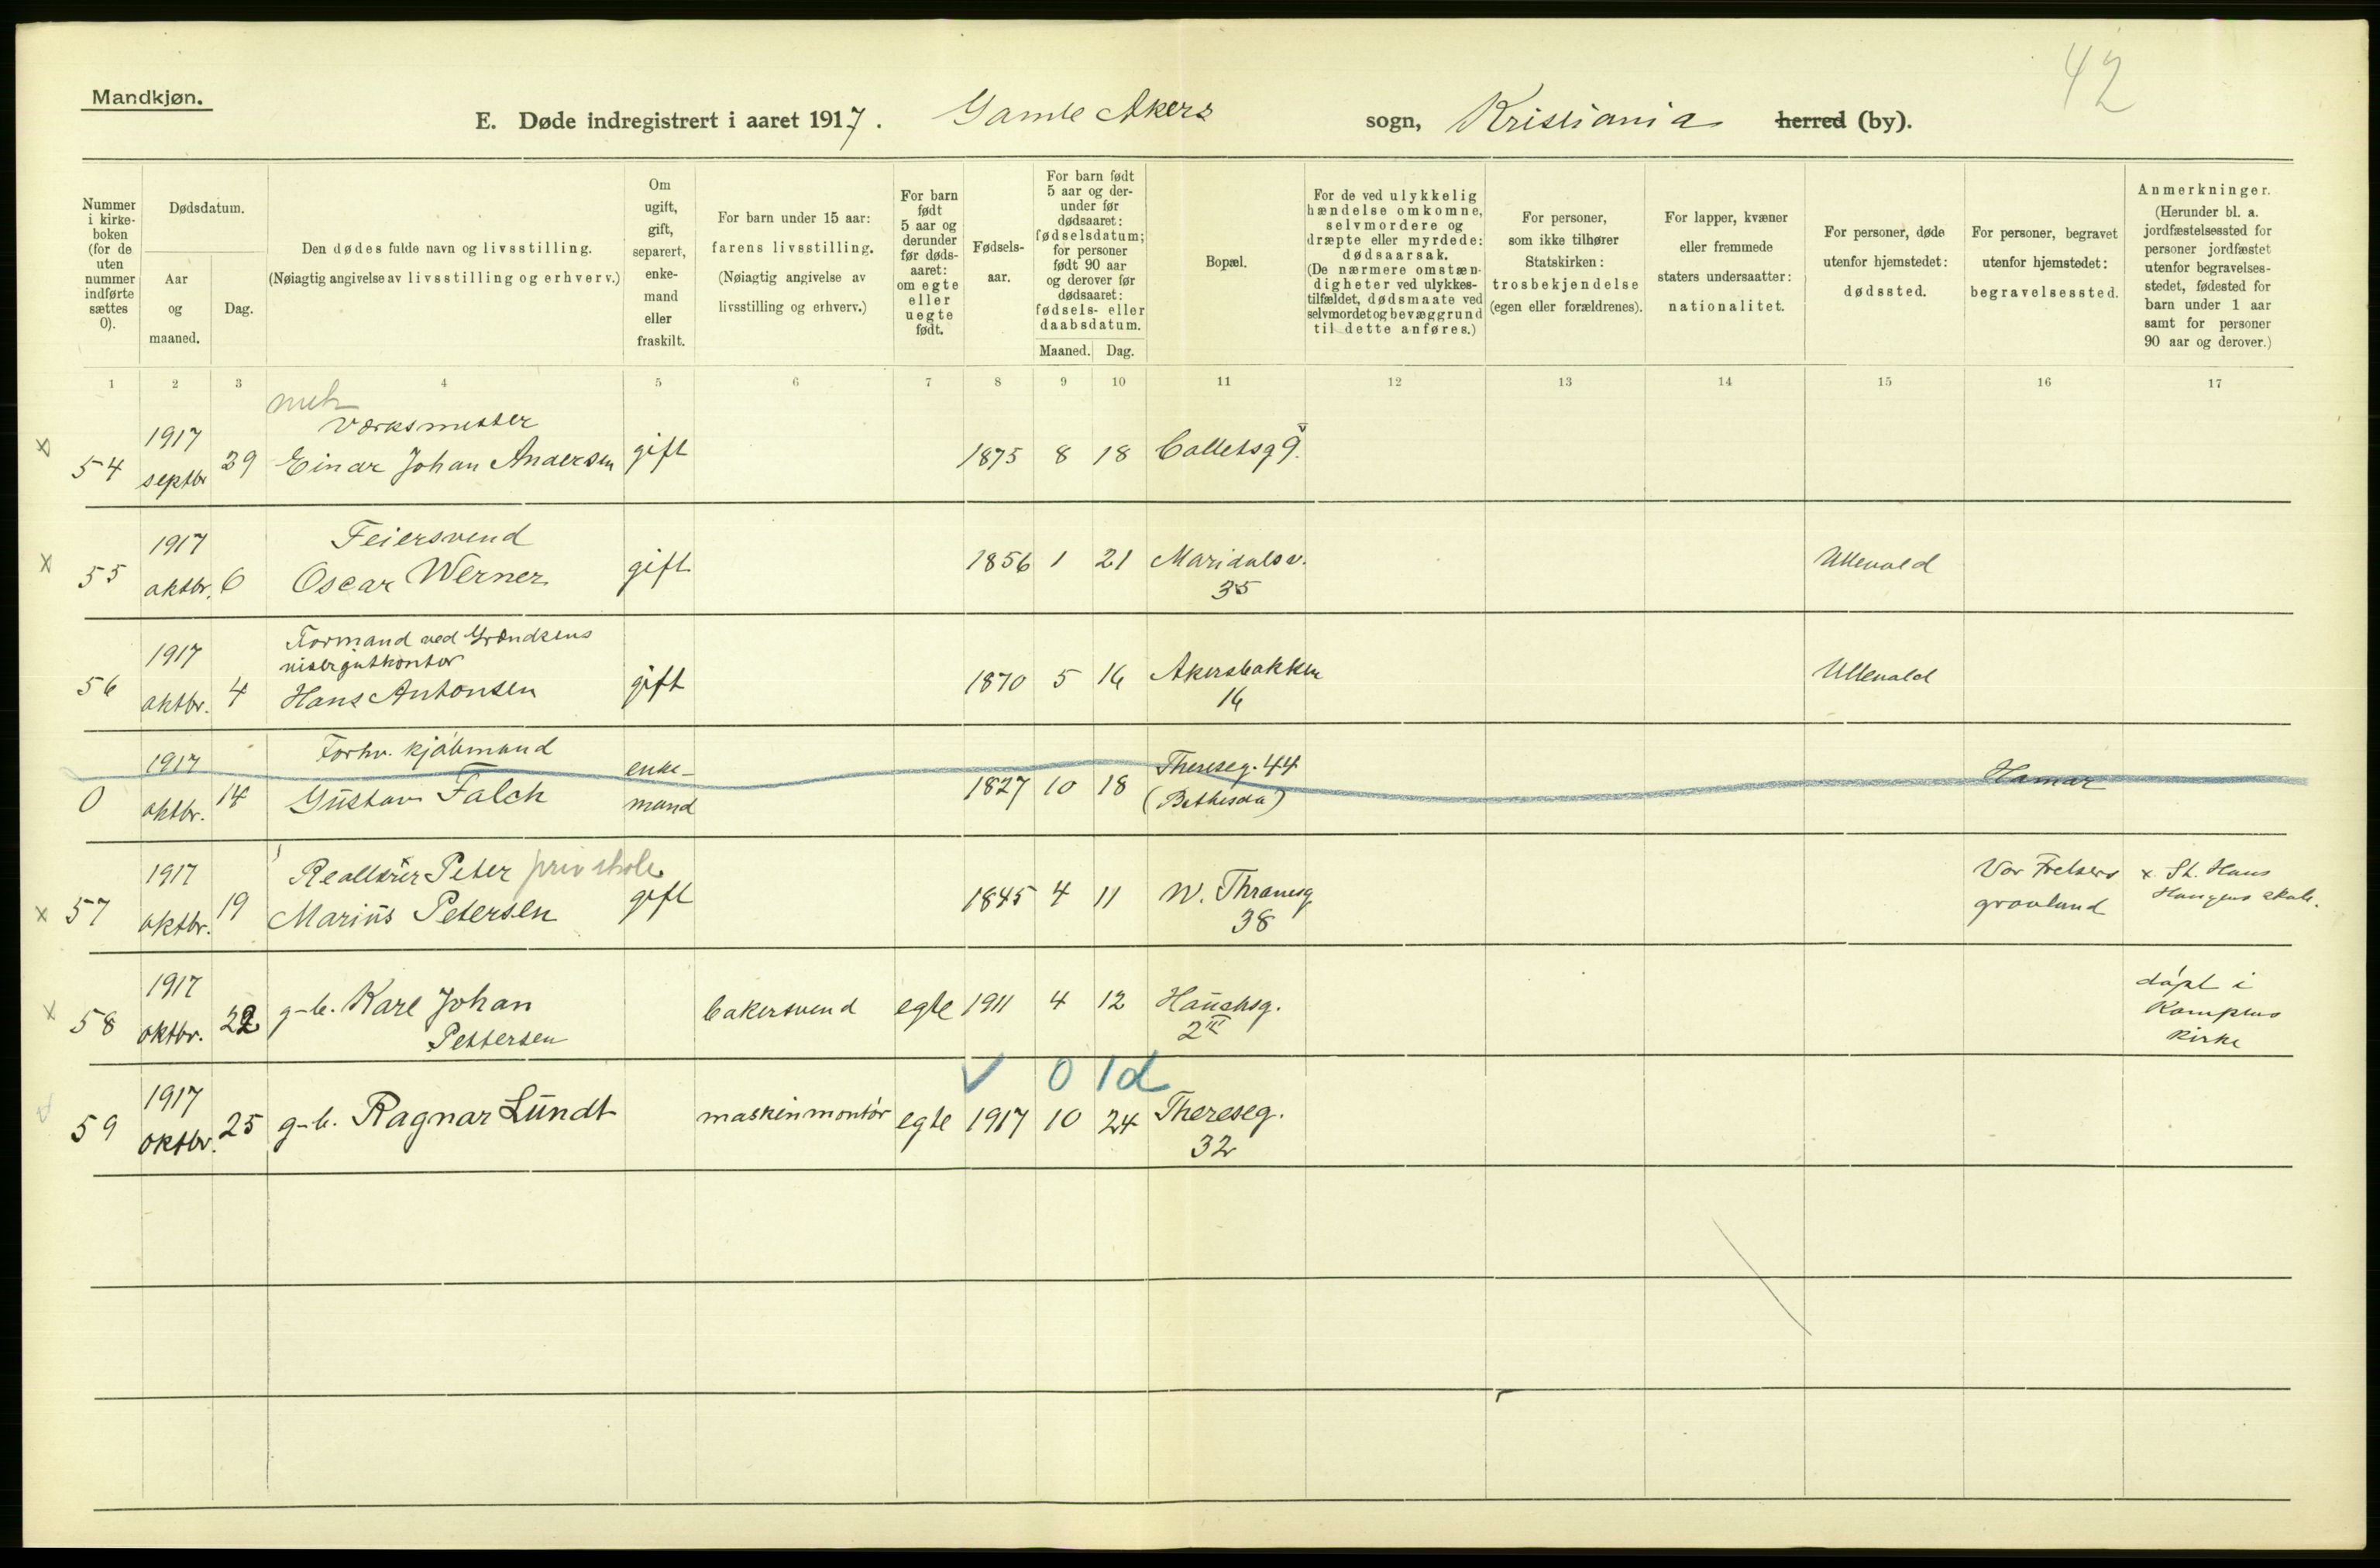 42
Mandkjøn.
E. Døde indregistrert i aaret 1917. Gamle Akers sogn, Kristiania herred (by).
Nummer i kirke-boken (for de uten nummer indførte sættes 0).
Dødsdatum.
Aar og maaned.
Dag.
Den dødes fulde navn og livsstilling.
(Nøiagtig angivelse av livsstilling og erhverv.)
Om ugift, gift, separert, enke-mand eller fraskilt.
For barn under 15 aar:
farens livsstilling.
(Nøiagtig angivelse av livsstilling og erhverv.)
For barn født 5 aar og derunder før døds-aaret: om egte eller uegte født.
Fødsels-aar.
For barn født 5 aar og der-under før dødsaaret: fødselsdatum; for personer født 90 aar og derover før dødsaaret: fødsels- eller daabsdatum.
Maaned. Dag.
Bopæl.
For de ved ulykkelig hændelse omkomne, selvmordere og dræpte eller myrdede: dødsaarsak.
(De nærmere omstæn-digheter ved ulykkes-tilfældet, dødsmaate ved selvmordet og bevæggrund til dette anføres.)
For personer, som ikke tilhører Statskirken: trosbekjendelse (egen eller forældrenes).
For lapper, kvæner eller fremmede staters undersaatter: nationalitet.
For personer, døde utenfor hjemstedet: dødssted.
For personer, begravet utenfor hjemstedet: begravelsessted.
Anmerkninger.
(Herunder bl. a. jordfæstelsessted for personer jordfæstet utenfor begravelses-stedet, fødested for barn under 1 aar samt for personer 90 aar og derover.)
1 2 3 4 5 6 7 8 9 10 11 12 13 14 15 16 17
mek
1917 Værksmester
x 54 septbr 29 Einar Johan Andersen gift 1875 8 18 Colletsg 9 V
1917 Feiersvend
x 55 oktbr. 6 Oscar Werner gift 1856 1 21 Maridalsv. 35 Ullevold
1917 Formand ved Grændsens
56 oktbr. 4 Hans Antonsen gift 1870 5 16 Akersbakken 16 Ullevold
1917 Forhv. kjøbmand enke-
0 oktbr. 14 Gustav Falch mand 1827 10 18 Thereseg. 44 (Bethesda) Hamar
1917 Reallærer Peter priv skole
x 57 oktbr. 19 Marius Petersen gift 1845 4 11 W. Thranesg. 38 Vor Frelsers gravlund x. St. Hans Haugens skole.
1917
x 58 oktbr. 22 g-b. Karl Johan Pettersen bakersvend egte 1911 4 12 Hauchsg. 2 III døpt i Kampens kirke
V 0 1d
1917
59 oktbr. 25 g-b. Ragnar Lundt maskinmontør egte 1917 10 24 Thereseg. 32